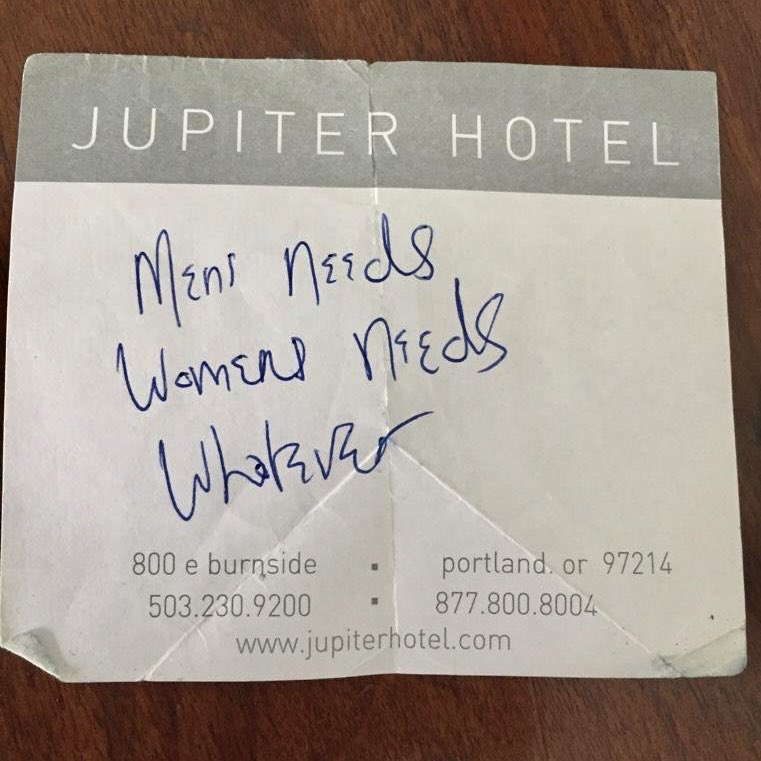 JUPITER HOTEL
Mens Needs
Womens Needs
Whatever
800 e burnside ▪ portland. or 97214
503.230.9200 ▪ 877.800.8004
www.jupiterhotel.com